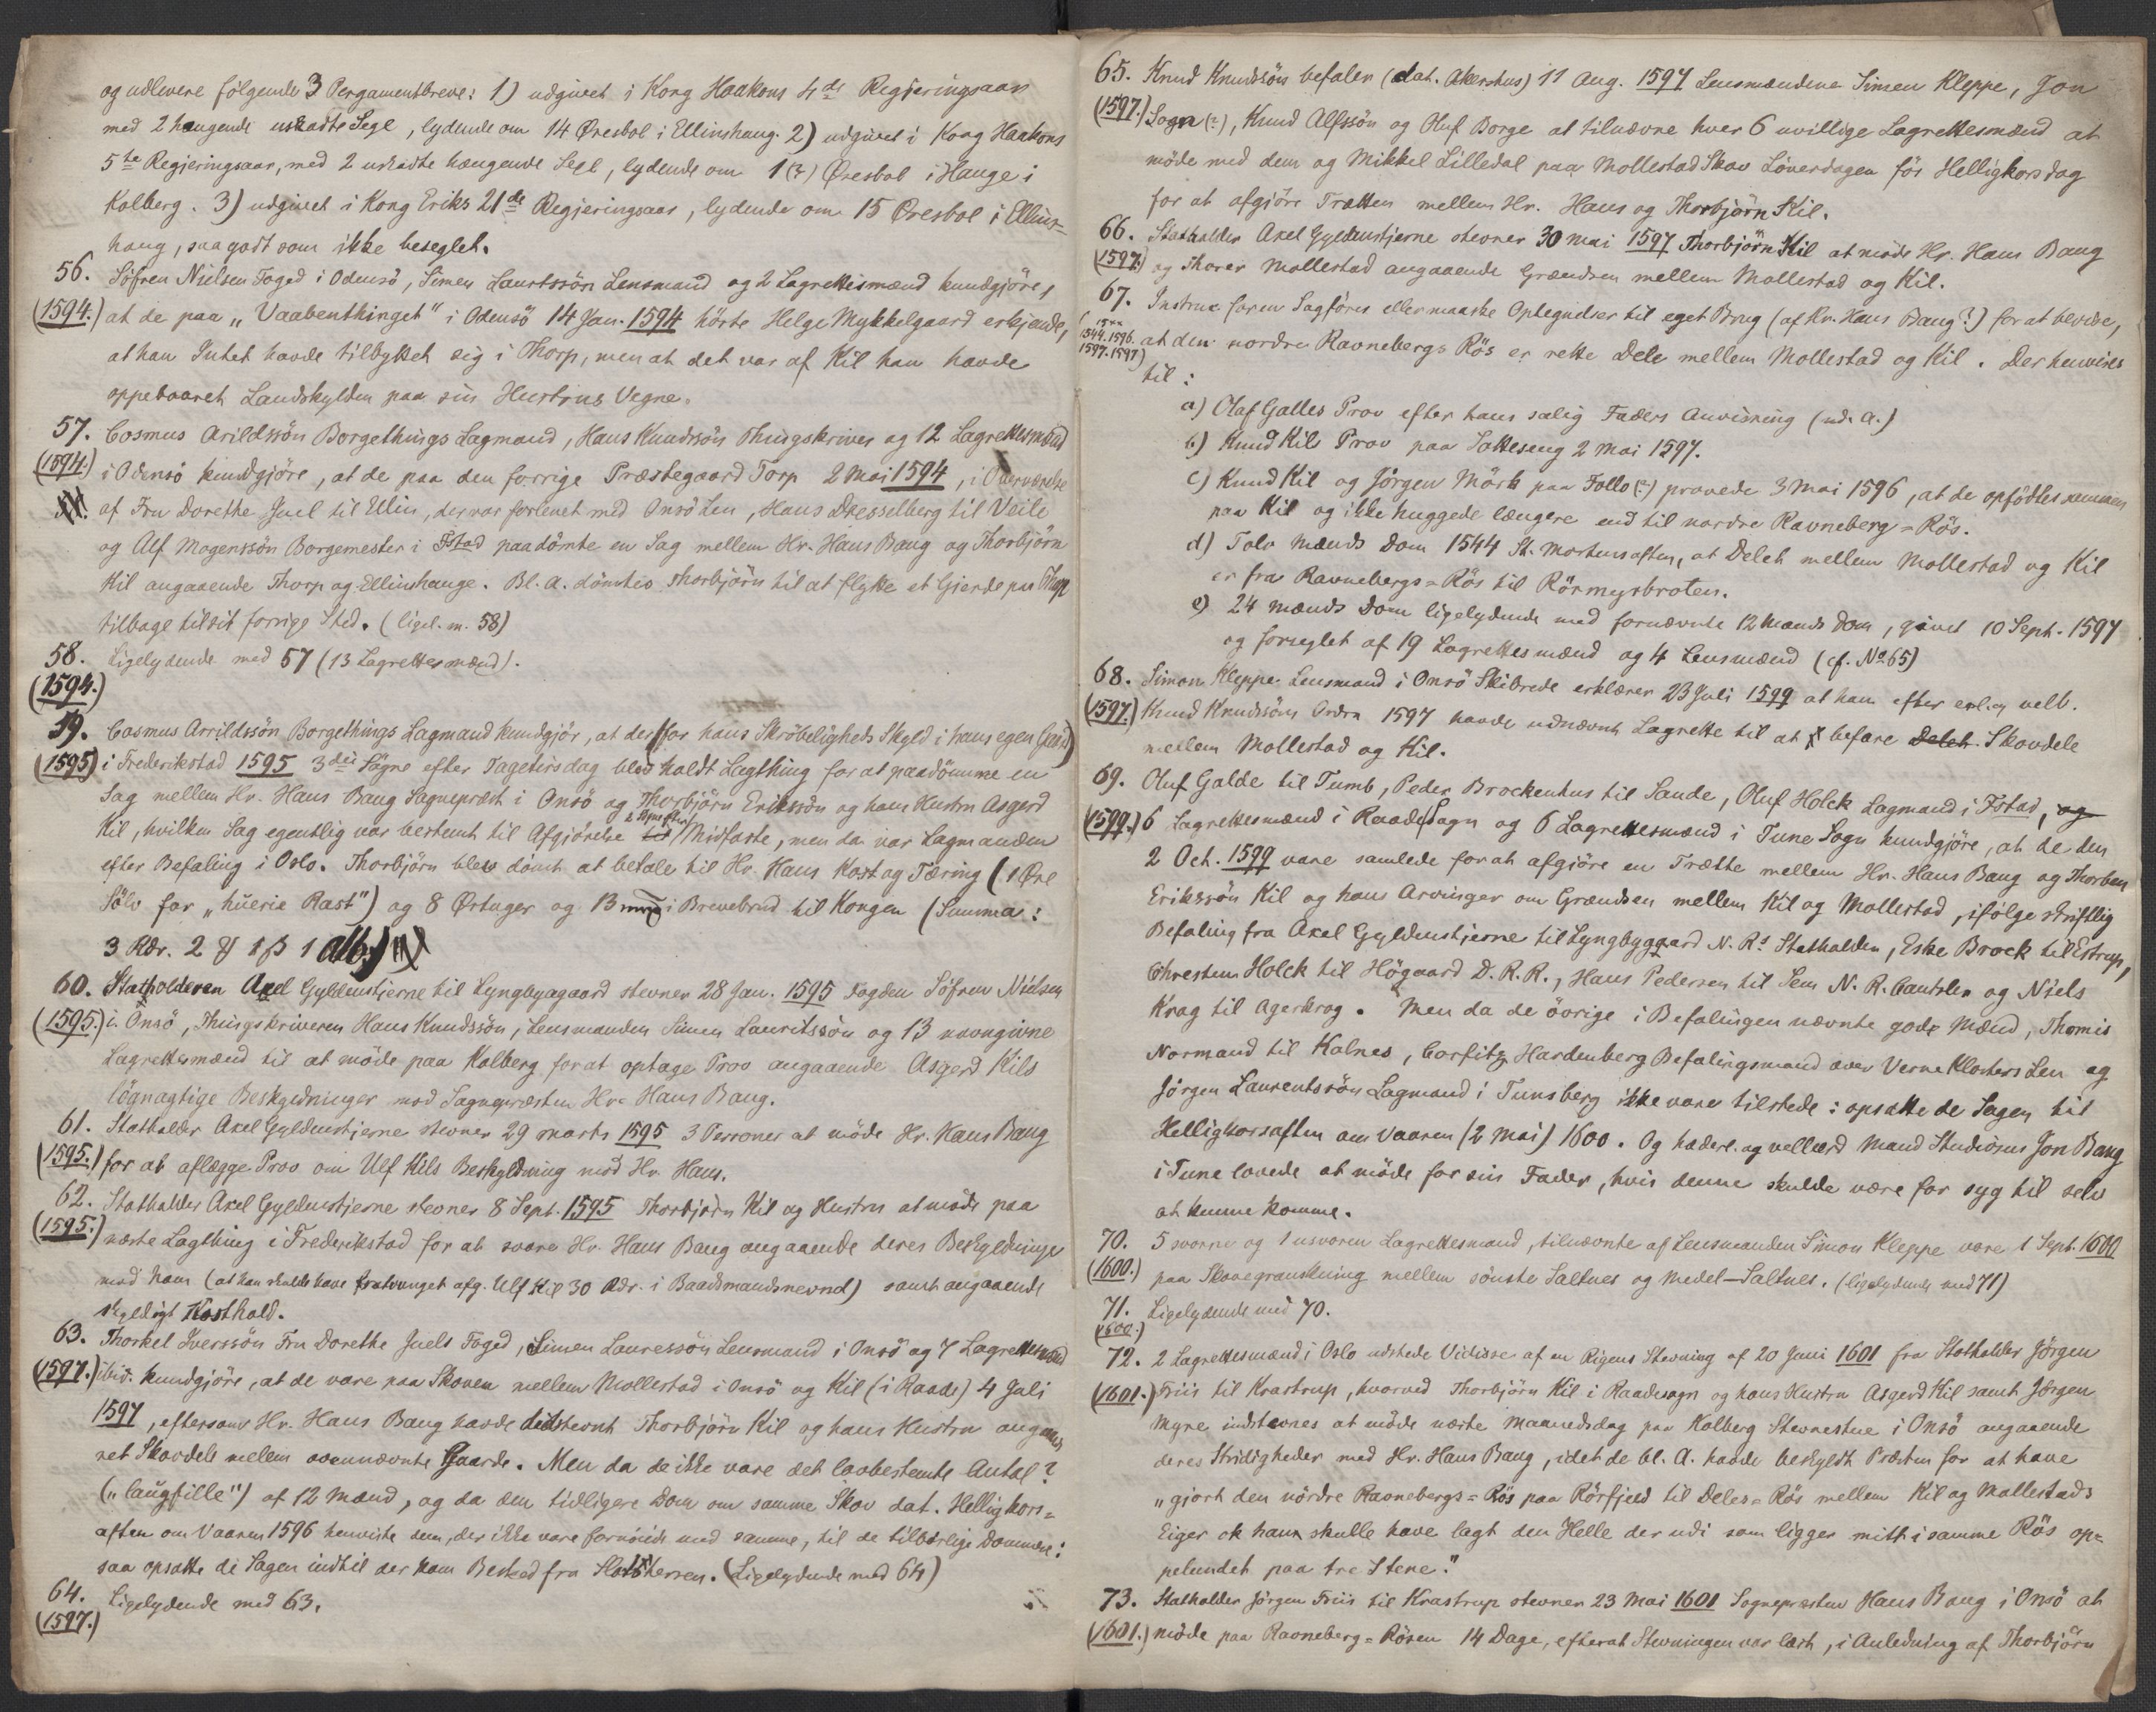 og udlevere følgende 3 Pergamentbreve: 1) udgivet i Kong Haakons 4de Regjeringsaar
med 2 hængende uskadte Segl, lydende om 14 Øresbol i Ellinshaug. 2) udgivet i Kong Haakons
5te Regjeringsaar, med 2 uskadte hængende Segl, lydende om 1(?) Øresbol i Hauge i
Kolberg. 3) udgivet i Kong Eriks 21de Regjeringsaar, lydende om 15 Øresbol i Ellins-
haug, saagodt som ikke beseglet.
56. Söfren Nielsen Foged i Odensö, Simen Laurtssön Lensmand og 2 Lagrettesmænd kundgjöre,
(1594.) at de paa „Vaabenthinget" i Odensö 14 Jan. 1594 hörte Helge Mykkelgaard erkjende,
at han Intet havde tilbyttet sig i Thorp, men at det var af Kil han havde
oppebaaret Landskylden paa sin Hustrus Vegne.
57. Cosmus Arildssön Borgethings Lagmand, Hans Knudssön Thingskriver og 12 Lagrettesmænd
(1594.) i Odensö kundgjöre, at de paa den forrige Præstegaard Torp 2 Mai 1594, i Overværelse
af Fru Dorethe Juel til Elin, der var forlenet med Onsö Len, Hans Dresselberg til Veile
og Alf Mogenssön Borgemester i Fstad paadömte en Sag mellem Hr. Hans Baug og Thorbjörn
Kil angaaende Thorp og Ellinshauge. Bl. a. dömtes Thorbjörn til at flytte et Gjerde paa Thorp
tilbage til sit forrige Sted. (ligel. m. 58)
58. Ligelydende med 57 (13 Lagrettesmænd).
(1594.)
59. Casmus Arrildssön Borgethings Lagmand kundgjör, at der (for hans Skröbeligheds Skyld i hans egen Gaard)
(1595) i Frederikstad 1595 3die Sögne efter Fagetirsdag blev holdt Lagthing for at paadömme en
Sag mellem Hr. Hans Baug Sognepræst i Onsö og Thorbjörn Erikssön og hans Hustru Asgerd
Kil, hvilken Sag egentlig var bestemt til Afgjörelse Midfaste, men da var Lagmanden
efter Befaling i Oslo. Thorbjörn blev dömt at betale til Hr. Hans Kost og Tæring (1 Øre
Sölv for „hüerie Rast") og 8 Ørtuger og 13 i Brevebrud til Kongen (Summa:
3 Rdr. 2 1 β 1 alb.)
60. Statholderen Axel Gyldenstjerne til Lyngbygaard stevner 28 Jan. 1595 Fogden Söfren Nielsen
(1595.) i Onsö, Thingskriveren Hans Knudssön, Lensmanden Simen Lauritssön og 13 navngivne
Lagrettesmænd til at möde paa Kolberg for at optage Prov angaaende Asgerd Kils
lögnagtige Beskyldninger mod Sognepræsten Hr. Hans Baug.
61. Statholder Axel Gyldenstjerne stevner 29 Marts 1595 3 Personer at möde Hr. Hans Baug
(1595.) for at aflægge Prov om Ulf Kils Beskyldning mod Hr. Hans.
62. Statholder Axel Gyldenstjerne stevner 8 Sept. 1595 Thorbjörn Kil og Hustru at möde paa
(1595.) næste Lagthing i Frederikstad for at svare Hr. Hans Baug angaaende deres Beskyldninger
mod ham (at han skulde have fratvunget afg. Ulf Kil 30 Rdr. i Baadsmandsnevnd) samt angaaende
skyldigt Kosthold.
63. Thorkel Iverssön Fru Dorethe Juels Foged, Simen Lauressön Lensmand i Onsö og 7 Lagrettesmænd
(1597.) ibid. kundgjöre, at de vare paa Skoven mellem Mollestad i Onsö og Kil (i Raade) 4 Juli
1597, eftersom Hr. Hans Baug havde didstevnt Thorbjörn Kil og hans Hustru angaaende
ret Skovdele mellem ovennævnte Gaarde. Men da de ikke vare det lovbestemte Antal?
(„laugfille") af 12 Mænd, og da den tidligere Dom om samme Skov dat. Helligkors-
aften om Vaaren 1596 henviste dem, der ikke vare fornöiede med samme, til de tilbörlige Dommere:
saa opsatte de Sagen indtil der kom Besked fra Slotsherren. (Ligelydende med 64)
64. Ligelydende med 63.
(1597.)
65. Knud Knudssön befaler (dat. Akershus) 11 Aug. 1597 Lensmændene Simen Kleppe, Jon
(1597.) Sogn(?), Knud Alfssön og Oluf Borge at tilnævne hver 6 uvillige Lagrettesmænd at
möde med dem og Mikkel Lilledal paa Mollestad Skov Löverdagen för Helligkorsdag
for at afgjöre Trætten mellem Hr. Hans og Thorbjörn Kil.
66. Statholder Axel Gyldenstjerne stevner 30 Mai 1597 Thorbjörn Kil at möde Hr. Hans Baug
(1597.) og Thorer Mollestad angaaende Grændsen mellem Mollestad og Kil.
67. Instrux for en Sagförer eller maaske Optegnelser til eget Brug (af Hr. Hans Baug?) for at bevise,
(1544. 1596. 1597. 1597) at den nordre Ravnebergs Rös er rette Dele mellem Mollestad og Kil. Der henvises
til:
a) Olaf Galles Prov efter hans salig Faders Anvisning (ud. A.)
b) Knud Kils Prov paa Sotteseng 2 Mai 1597.
c) Knud Kil og Jörgen Mörk paa Follo(?) provede 3 Mai 1596, at de opfödtes sammen
paa Kil og ikke huggede længere end til nordre Ravneberg-Rös.
d) Tolv Mænds Dom 1544 St. Mortensaften, at Delet mellem Mollestad og Kil
er fra Ravnebergs-Rös til Rörmyrbroten.
e) 24 Mænds Dom ligelydende med fornævnte 12 Mands Dom, givet 10 Sept. 1597
og forseglet af 19 Lagrettesmænd og 4 Lensmænd (cf. No 65)
68. Simon Kleppe Lensmand i Onsö Skibrede erklærer 23 Juli 1599 at han efter erlig velb.
(1597.) Knud Knudssöns Ordre 1597 havde udnævnt Lagrette til at befare Delet Skovdele
mellem Mollestad og Kil.
69. Oluf Galde til Tumb, Peder Brockenhus til Sande, Oluf Holck Lagmand i Fstad, og
(1599.) 6 Lagrettesmænd i Raade Sogn og 6 Lagrettesmænd i Tune Sogn kundgjöre, at de den
2 Oct. 1599 vare samlede for at afgjöre en Trætte mellem Hr. Hans Baug og Thorben
Erikssön Kil og hans Arvinger om Grændsen mellem Kil og Mollestad, ifölge skriftlig
Befaling fra Axel Gyldenstjerne til Lyngbyggaard N. Rs Statholder, Eske Brock til Estrup,
Chresten Holck til Högaard D. R. R., Hans Pedersen til Sem N. R. Cantsler og Niels
Krag til Agerkrog. Men da de övrige i Befalingen nævnte gode Mænd, Thomis
Normand til Kalnes, Corfitz Hardenberg Befalingsmand over Verne Klosters Len og
Jörgen Laurentssön Lagmand i Tunsberg ikke vare tilstede: opsatte de Sagen til
Helligkorsaften om Vaaren (2 Mai) 1600. Og hæderl. og vellærd Mand Studiosus Jon Baug
i Tune lovede at möde for sin Fader, hvis denne skulde være for syg til selv
at kunne komme.
70. 5 svorne og 1 usvoren Lagrettesmand, tilnævnte af Lensmanden Simon Kleppe vare 1 Sept. 1600
(1600.) paa Skovegranskning mellem sönste Saltnes og Medel-Saltnes. (ligelydende med 71)
71. Ligelydende med 70.
(1600.)
72. 2 Lagrettesmænd i Oslo udstede Vidisse af en Rigens Stevning af 20 Juni 1601 fra Statholder Jörgen
(1601.) Friis til Krastrup, hvorved Thorbjörn Kil i Raadesogn og hans Hustru Asgerd Kil samt Jörgen
Myre indstevnes at möde næste Maanedsdag paa Kolberg Stevnestue i Onsö angaaende
deres Stridigheder med Hr. Hans Baug, idet de bl. A. havde beskyldt Præsten for at have
„gjort den nördre Ravnebergs-Rös paa Rörfjeld til Deles-Rös mellem Kil og Mollestads
Eiger ok han skulle have lagt den Helle der udi som ligger mitt i samme Rös op-
pelundet paa tre Stene."
73. Statholder Jörgen Friis til Krastrup stevner 23 Mai 1601 Sognepræsten Hans Baug i Onsö at
(1601.) möde paa Ravneberg-Rösen 14 Dage, efterat Stevningen var læst, i Anledning af Thorbjörn